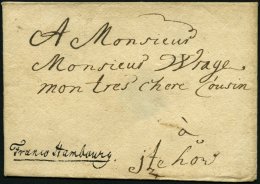 A Monsieur
Monsieur Wrage,
mon tres chere Cousin
à
Franco Hambourg. Jtzehöe